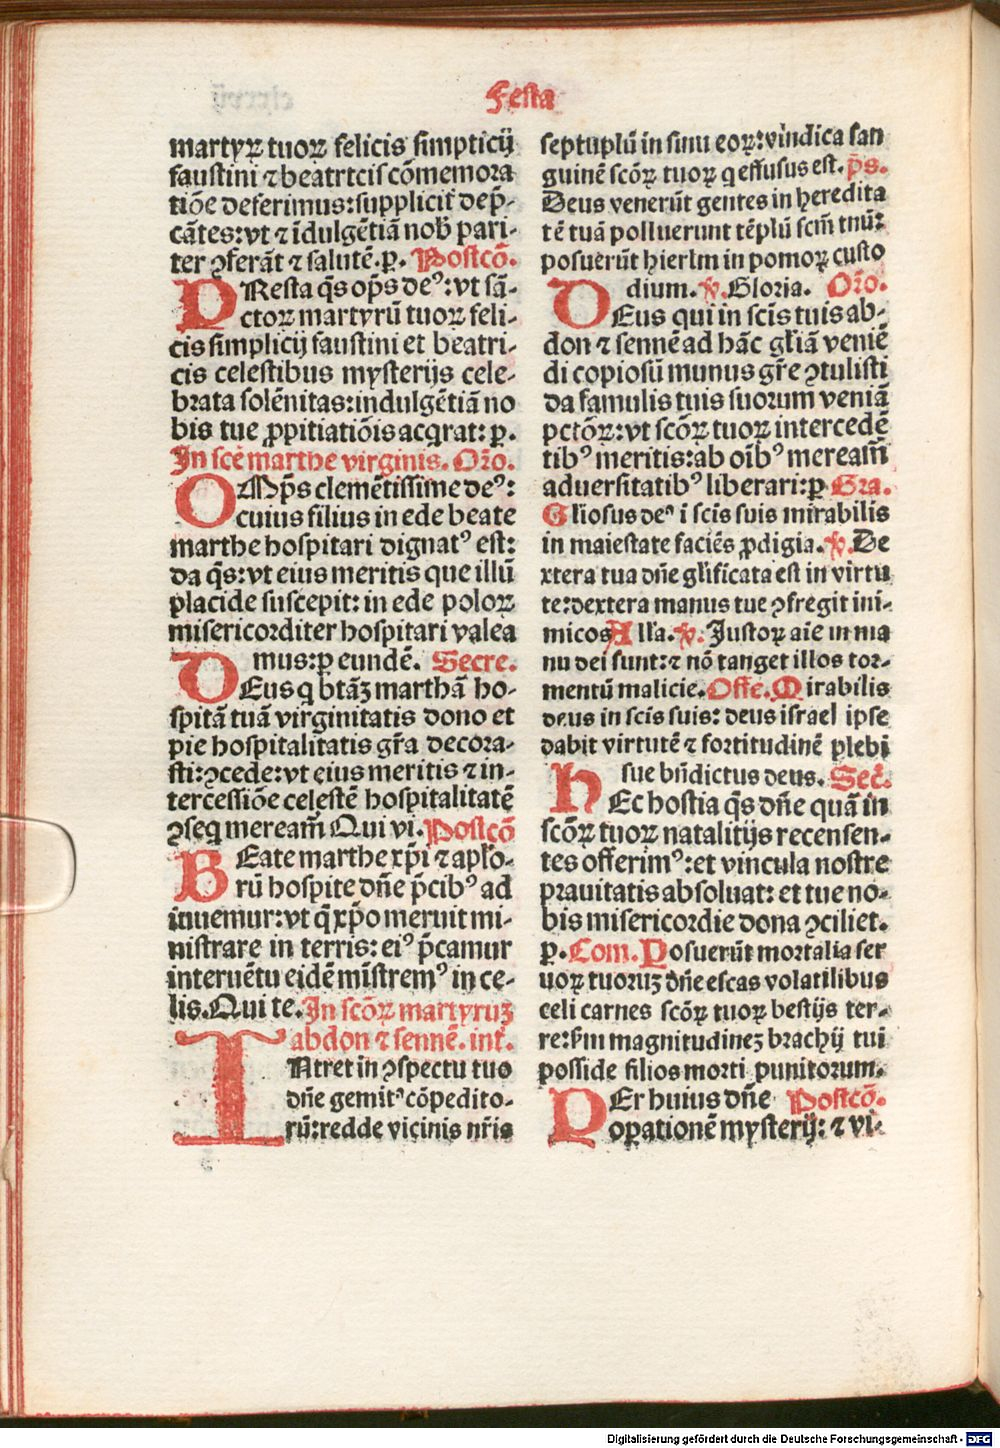 Festa
martyꝝ tuoꝝ felicis simplicij
faustini ⁊ beatrtcis cōmemora
tiōe deferimus: supplicit᷑ dep̄-
cātes: vt ⁊ īdulgētiā nob̄ pari-
ter ꝯferāt ⁊ salutē. p. Postcō.
PResta q̄s op̄s deꝰ: vt sā-
ctoꝝ martyrū tuoꝝ feli-
cis simplicij faustini et beatri-
cis celestibus mysterijs cele-
brata solēnitas: indulgētiā no
bis tue ꝓpitiatiōis acq̄rat: p.
In scē marthe virginis. Oro.
OMp̄s clemētissime deꝰ:
cuius filius in ede beate
marthe hospitari dignatꝰ est:
da q̄s: vt eius meritis que illū
placide suscepit: in ede poloꝝ
misericorditer hospitari valea
mus: p eundē. Secre.
DEus q btāꝫ marthā ho-
spitā tuā virginitatis dono et
pie hospitalitatis gr̄a decora-
sti: ꝯcede: vt eius meritis ⁊ in-
tercessiōe celestē hospitalitatē
ꝯseq meream̄ Qui vi. Postcō
BEate marthe xp̄i ⁊ apl̄o-
rū hospite dn̄e p̄cibꝰ ad
iuuemur: vt q̄ xp̄o meruit mi-
nistrare in terris: eiꝰ p̄camur
interuētu eidē mīstremꝰ in ce-
lis. Qui te. In scōꝝ martyruꝫ
abdon ⁊ sennē. int̄.
INtret in ꝯspectu tuo
dn̄e gemitꝰ cōpedito-
rū: redde vicinis nr̄is
septuplū in sinu eoꝝ: vindica san
guinē scōꝝ tuoꝝ q effusus est. p̄s.
Deus venerūt gentes in heredita
tē tuā polluerunt tēplū scm̄ tuū:
posuerūt hierlm in pomoꝝ custo
dium. ℣. Gloria. Oro.
DEus qui in scīs tuis ab-
don ⁊ sennē ad hāc gl̄iā veniē
di copiosū munus gr̄e ꝯtulisti
da famulis tuis suorum veniā
pctōꝝ: vt scōꝝ tuoꝝ intercedē
tibꝰ meritis: ab oībꝰ meream̄
aduersitatibꝰ liberari: p Gra.
Gliosus deꝰ i scīs suis mirabilis
in maiestate faciēs ꝓdigia. ℣. De
xtera tua dn̄e gl̄ificata est in virtu
te: dextera manus tue ꝯfregit ini-
micos Alla. ℣. Iustoꝝ aīe in ma
nu dei sunt: ⁊ nō tanget illos tor-
mentū malicie. Offe. Mirabilis
deus in scīs suis: deus israel ipse
dabit virtutē ⁊ fortitudinē plebi
sue bn̄dictus deus. Sec̄.
HEc hostia q̄s dn̄e quā in
scōꝝ tuoꝝ natalitijs recensen-
tes offerimꝰ: et vincula nostre
prauitatis absoluat: et tue no-
bis misericordie dona ꝯciliet.
p. Com. Posuerūt mortalia ser
uoꝝ tuoruꝫ dn̄e escas volatilibus
celi carnes scōꝝ tuoꝝ bestijs ter-
re: sm̄ magnitudineꝫ brachij tui
posside filios morti punitorum.
PEr huius dn̄e Postcō.
opationē mysterij: ⁊ vi-
Digitalisierung gefördert durch die Deutsche Forschungsgemeinschaft - DFG